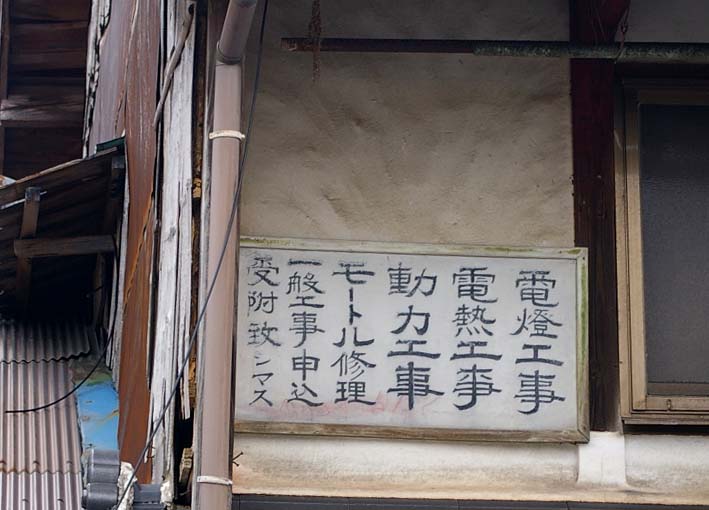 電燈工事
電熱工事
動力工事
モートル修理
一般工事申込
受附致シマス